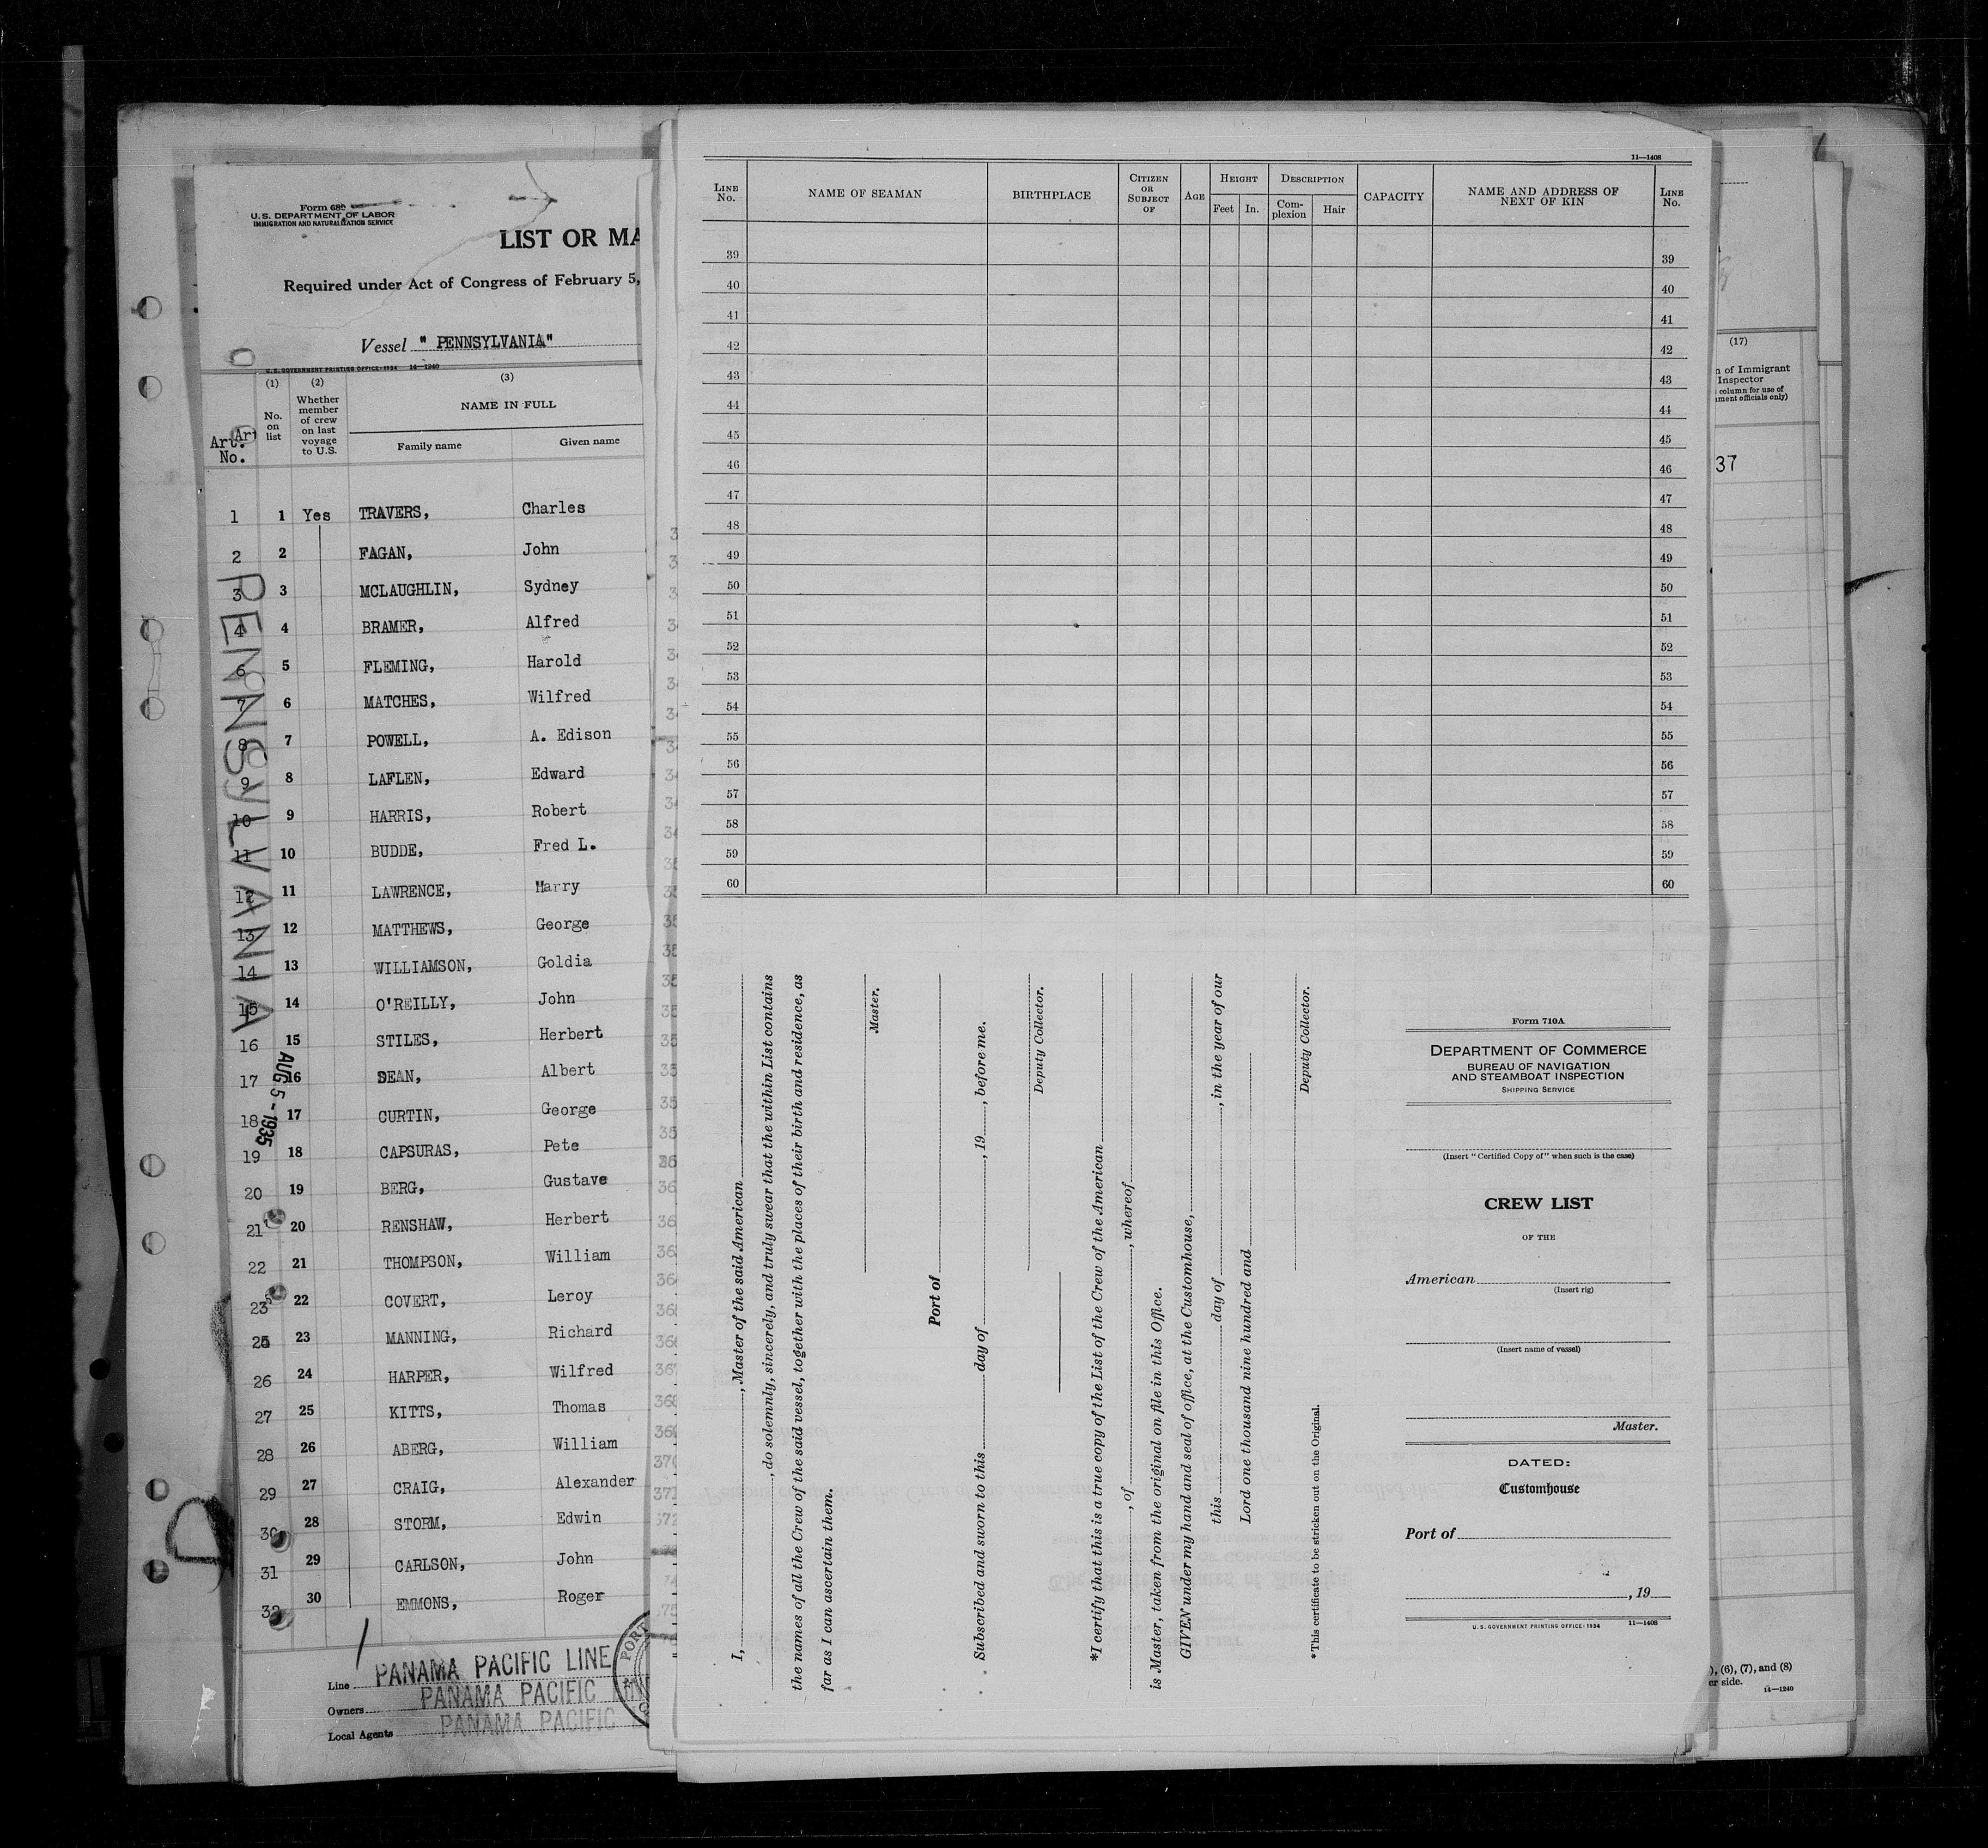 Form 680
U.S. DEPARTMENT OF LABOR
IMMIGRATION AND NATURALIZATION SERVICE
LIST OR MA
Required under Act of Congress of February 5,
Vessel " PENNSYLVANIA"
U.S. GOVERNMENT PRINTING OFFICE: 1934 14—1240
(1) (2) (3)
Art. No.
No. on list
Whether member of crew on last voyage to U.S.
NAME IN FULL
Family name Given name
1 1 Yes TRAVERS, Charles
2 2 FAGAN, John
3 3 MCLAUGHLIN, Sydney
4 4 BRAMER, Alfred
6 5 FLEMING, Harold
7 6 MATCHES, Wilfred
8 7 POWELL, A. Edison
9 8 LAFLEN, Edward
10 9 HARRIS, Robert
11 10 BUDDE, Fred L.
12 11 LAWRENCE, Harry
13 12 MATTHEWS, George
14 13 WILLIAMSON, Goldia
15 14 O'REILLY, John
16 15 STILES, Herbert
17 16 DEAN, Albert
18 17 CURTIN, George
19 18 CAPSURAS, Pete
20 19 BERG, Gustave
21 20 RENSHAW, Herbert
22 21 THOMPSON, William
23 22 COVERT, Leroy
25 23 MANNING, Richard
26 24 HARPER, Wilfred
27 25 KITTS, Thomas
28 26 ABERG, William
29 27 CRAIG, Alexander
30 28 STORM, Edwin
31 29 CARLSON, John
32 30 EMMONS, Roger
PENNSYLVANIA
AUG 5 - 1935
Line PANAMA PACIFIC LINE
Owners PANAMA PACIFIC LINE
Local Agents PANAMA PACIFIC
PORT
11—1408
LINE No.
NAME OF SEAMAN
BIRTHPLACE
CITIZEN OR SUBJECT OF
AGE
HEIGHT
Feet In.
DESCRIPTION
Complexion Hair
CAPACITY
NAME AND ADDRESS OF NEXT OF KIN
LINE No.
39 39
40 40
41 41
42 42
43 43
44 44
45 45
46 46
47 47
48 48
49 49
50 50
51 51
52 52
53 53
54 54
55 55
56 56
57 57
58 58
59 59
60 60
I, , Master of the said American
, do solemnly, sincerely, and truly swear that the within List contains
the names of all the Crew of the said vessel, together with the places of their birth and residence, as
far as I can ascertain them.
Master.
Port of
Subscribed and sworn to this day of , 19 , before me.
Deputy Collector.
*I certify that this is a true copy of the List of the Crew of the American
, of , whereof
is Master, taken from the original on file in this Office.
GIVEN under my hand and seal of office, at the Customhouse,
this day of , in the year of our
Lord one thousand nine hundred and
Deputy Collector.
*This certificate to be stricken out on the Original.
Form 710A
DEPARTMENT OF COMMERCE
BUREAU OF NAVIGATION
AND STEAMBOAT INSPECTION
SHIPPING SERVICE
(Insert "Certified Copy of" when such is the case)
CREW LIST
OF THE
American
(Insert rig)
(Insert name of vessel)
Master.
DATED:
Customhouse
Port of
, 19
U.S. GOVERNMENT PRINTING OFFICE: 1934 11—1408
(17)
n of Immigrant
Inspector
column for use of
ment officials only)
37
), (6), (7), and (8)
er side.
14—1240